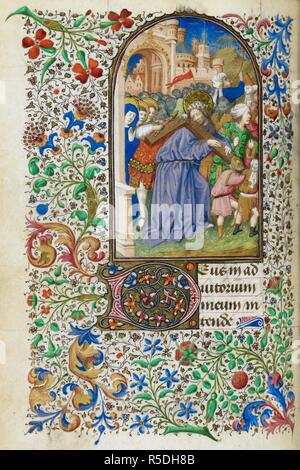 DEus in ad
iutorium
meum in
tende